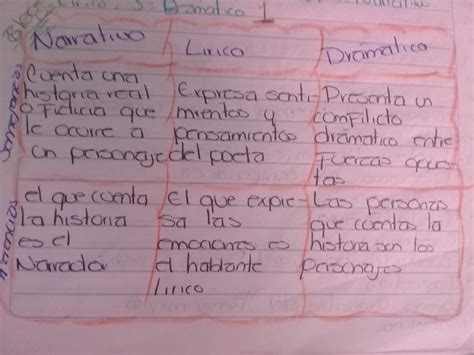 Lirico, 3- Dramatico 1
Narrativo
Lirico
Dramatico
Cuenta una
historia real
o ficticia que
le ocurre a
un personaje
Expresa senti-
mientos y
pensamientos
del poeta
Presenta un
conflicto
dramatico entre
fuerzas opues
tas
el que cuenta
la historia
es el
Narrador
El que expre-
sa las
emociones es
el hablante
Lirico
Las personas
que cuentas la
historia son los
personajes